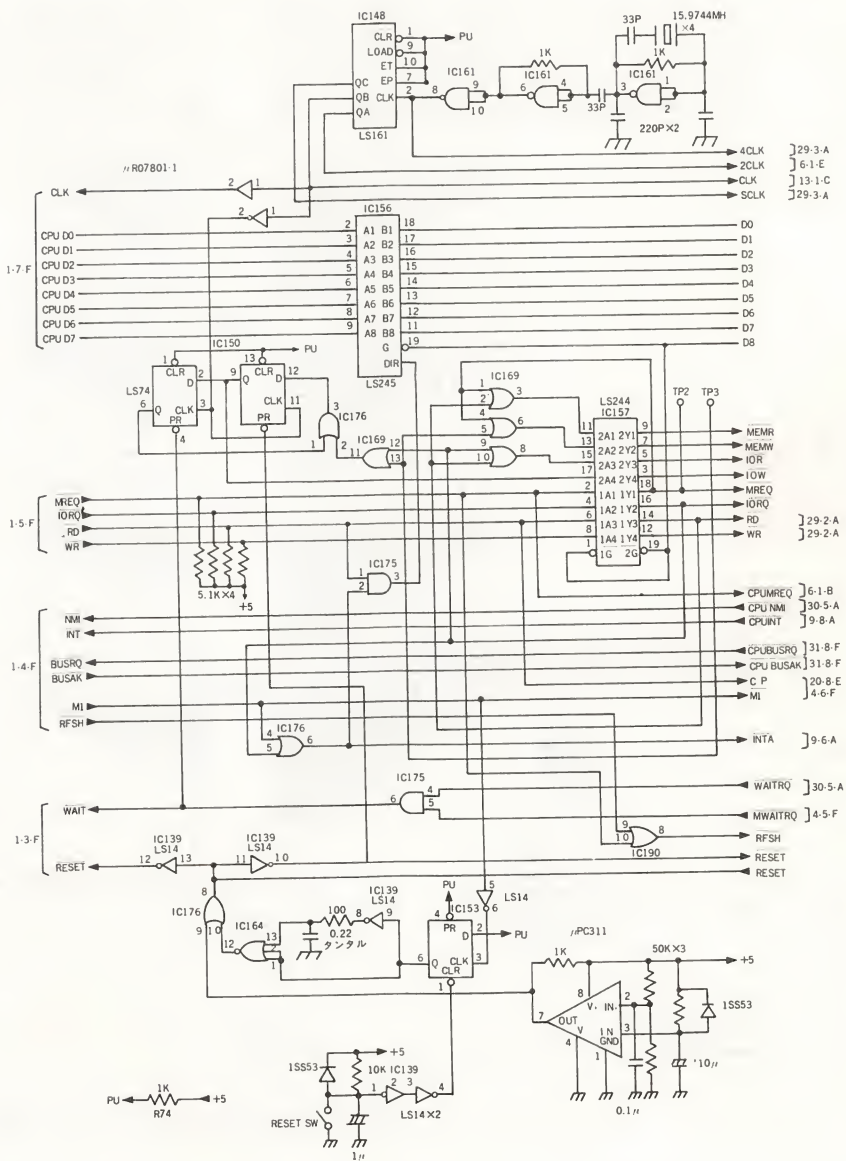 IC148
LS161
CLR
LOAD
ET
EP
CLK
QC
QB
QA
1
9
10
7
2
PU
33P
15.9744MH
×4
1K
IC161
3
1
2
220P×2
33P
1K
IC161
6
4
5
IC161
8
9
10
4CLK
29·3·A
2CLK
6·1·E
CLK
13·1·C
SCLK
29·3·A
〃R07801·1
CLK
2
1
2
1
1·7·F
CPU D0
CPU D1
CPU D2
CPU D3
CPU D4
CPU D5
CPU D6
CPU D7
IC156
2 A1 B1 18
3 A2 B2 17
4 A3 B3 16
5 A4 B4 15
6 A5 B5 14
7 A6 B6 13
8 A7 B7 12
9 A8 B8 11
G 19
DIR
LS245
D0
D1
D2
D3
D4
D5
D6
D7
D8
IC150
PU
LS74
1
CLR
2
D
6
Q
CLK
3
PR
4
13
CLR
9
Q
D
12
CLK
11
PR
IC176
3
1
2
IC169
11
12
13
IC169
1
2
3
4
5
6
9
10
8
LS244
IC157
11 2A1 2Y1 9
13 2A2 2Y2 7
15 2A3 2Y3 5
17 2A4 2Y4 3
2 1A1 1Y1 18
4 1A2 1Y2 16
6 1A3 1Y3 14
8 1A4 1Y4 12
1 1G 2G 19
TP2
TP3
MEMR
MEMW
IOR
IOW
MREQ
IORQ
RD
29·2·A
WR
29·2·A
1·5·F
MREQ
IORQ
RD
WR
5.1K×4
+5
IC175
1
2
3
CPUMREQ
6·1·B
CPU NMI
30·5·A
CPUINT
9·8·A
CPUBUSRQ
31·8·F
CPU BUSAK
31·8·F
C P
20·8·E
M1
4·6·F
1·4·F
NMI
INT
BUSRQ
BUSAK
M1
RFSH
IC176
4
5
6
INTA
9·6·A
IC175
6
4
5
WAITRQ
30·5·A
MWAITRQ
4·5·F
IC190
9
10
8
RFSH
RESET
RESET
1·3·F
WAIT
RESET
IC139
LS14
12
13
IC139
LS14
11
10
IC176
8
9
10
IC164
12
13
2
1
100
0.22
タンタル
IC139
LS14
8
9
IC153
PU
4
PR
D
2
PU
Q
6
CLK
3
CLR
1
LS14
5
6
〃PC311
1K
50K×3
+5
8
V+
IN-
2
OUT
7
IN
3
GND
V
4
1
1SS53
10μ
0.1μ
1SS53
+5
10K
IC139
1
2
3
4
LS14×2
RESET SW
1μ
PU
1K
R74
+5